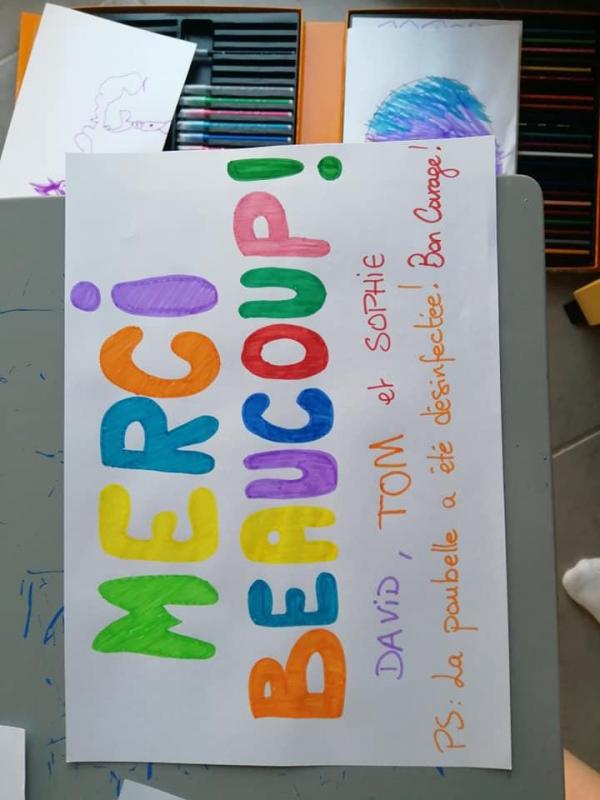 MERCi
BEAUCOUP!
DAViD, TOM et SOPHiE
PS: La poubelle a été désinfectée! Bon Courage!